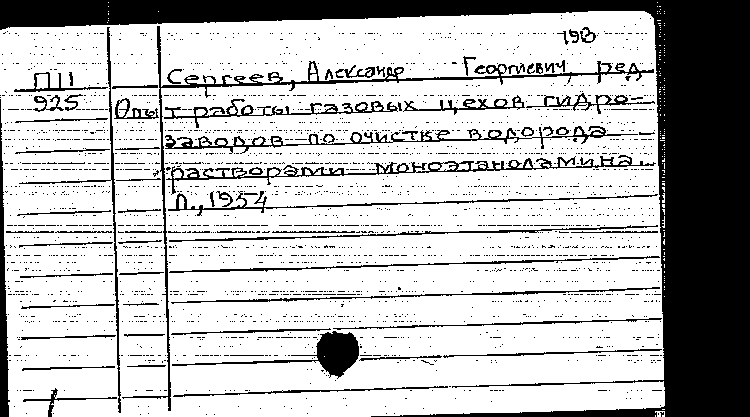 П11 Сергеев, Александр Георгиевич, ред.
925 Опыт работы газовых цехов гидро-
заводов по очистке водорода
растворами моноэтаноламина.
Л., 1954